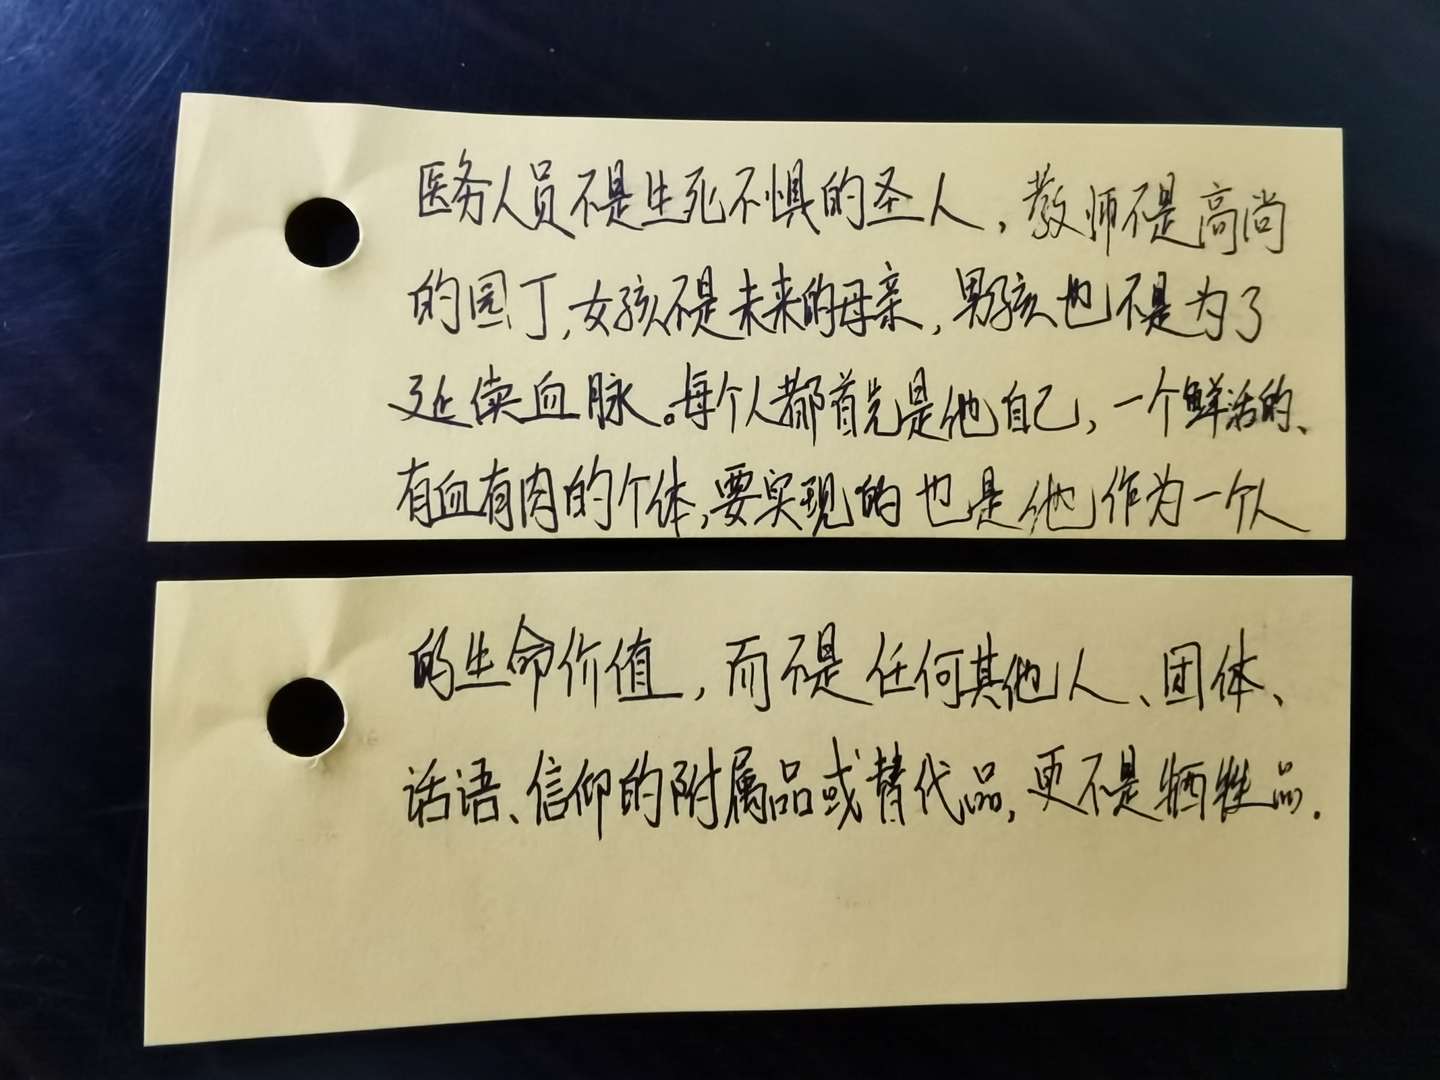 医务人员不是生死不惧的圣人，教师不是高尚
的园丁，女孩不是未来的母亲，男孩也不是为了
延续血脉。每个人都首先是他自己，一个鲜活的、
有血有肉的个体，要实现的也是他作为一个人
的生命价值，而不是任何其他人、团体、
话语、信仰的附属品或替代品，更不是牺牲品.